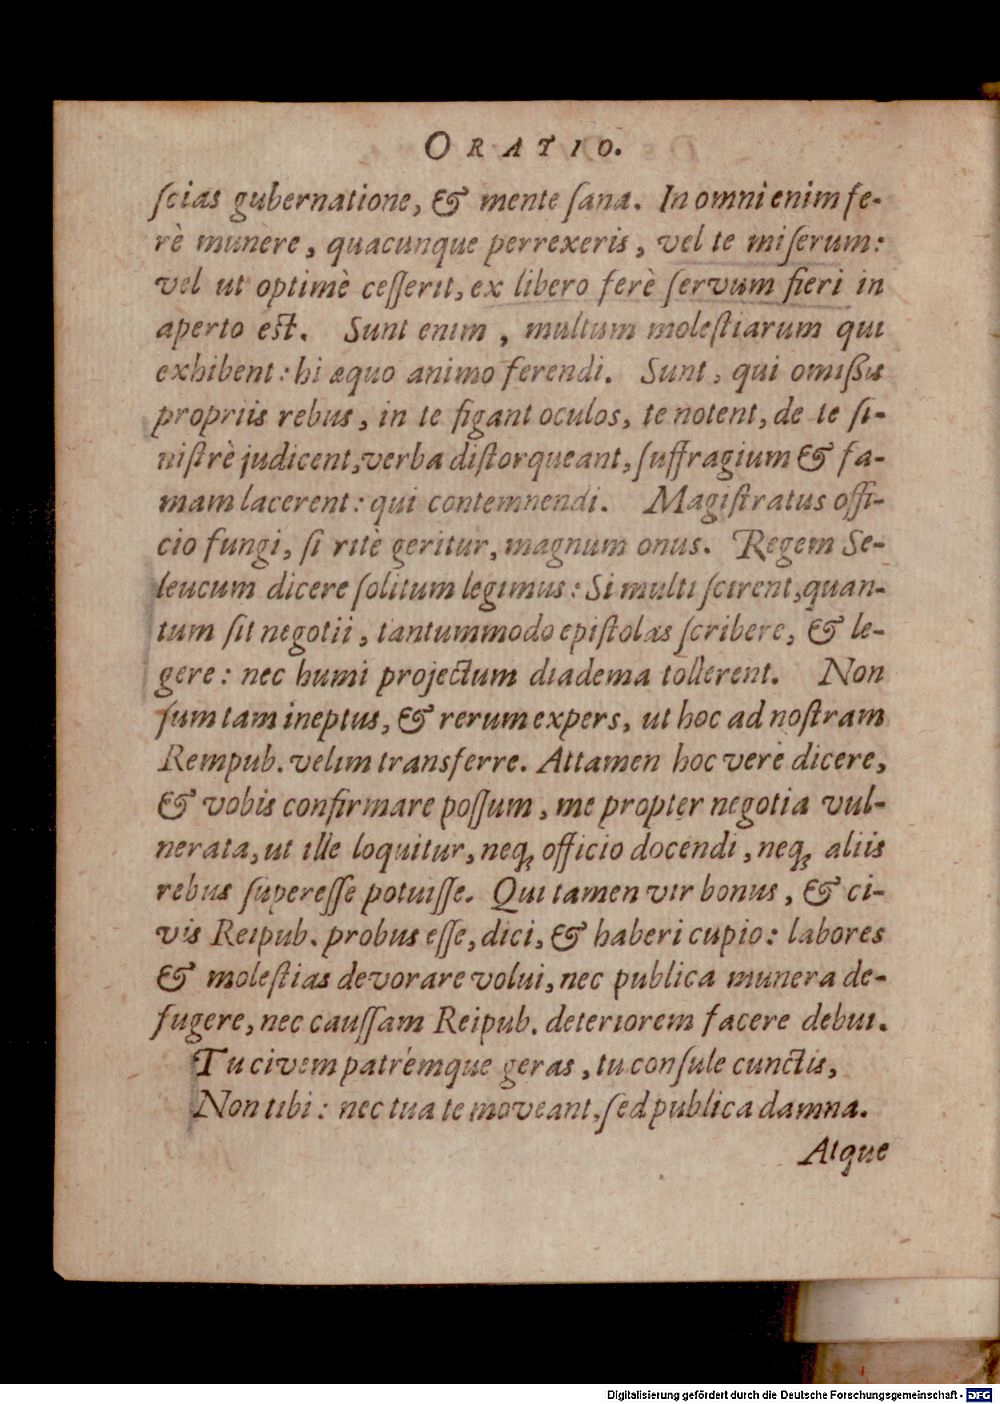 ORATIO.
ſcias gubernatione, & mente ſana. In omni enim fe-
rè munere, quacunque perrexeris, vel te miſerum:
vel ut optimè ceſſerit, ex libero ferè ſervum fieri in
aperto eſt. Sunt enim, multum moleſtiarum qui
exhibent: hi æquo animo ferendi. Sunt, qui omiſſis
propriis rebus, in te figant oculos, te notent, de te ſi-
niſtrè judicent, verba diſtorqueant, ſuffragium & fa-
mam lacerent: qui contemnendi. Magiſtratus offi-
cio fungi, ſi ritè geritur, magnum onus. Regem Se-
leucum dicere ſolitum legimus: Si multi ſcirent, quan-
tum ſit negotii, tantummodo epiſtolas ſcribere, & le-
gere: nec humi projectum diadema tollerent. Non
ſum tam ineptus, & rerum expers, ut hoc ad noſtram
Rempub. velim transferre. Attamen hoc verè dicere,
& vobis confirmare poſſum, me propter negotia vul-
nerata, ut ille loquitur, neq; officio docendi, neq; aliis
rebus ſupereſſe potuiſſe. Qui tamen vir bonus, & ci-
vis Reipub. probus eſſe, dici, & haberi cupio: labores
& moleſtias devorare volui, nec publica munera de-
fugere, nec cauſſam Reipub. deteriorem facere debui.
Tu civem patrémque geras, tu conſule cunctis,
Non tibi: nec tua te moveant, ſed publica damna.
Atque
Digitalisierung gefördert durch die Deutsche Forschungsgemeinschaft - DFG